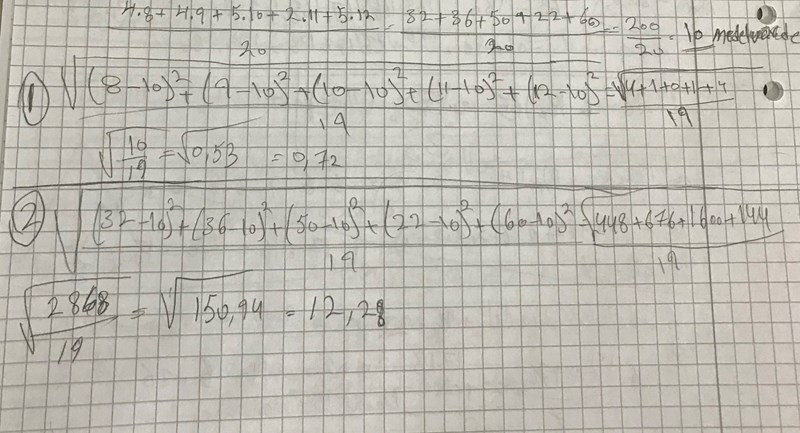 4.8+4.9+5.10+2.11+5.12 = 32+36+50+22+60 = 200 = 10 medelvärde
20 20 20
① √(8-10)²+(9-10)²+(10-10)²+(11-10)²+(12-10)² = √4+1+0+1+4
19 19
√10/19 = √0,53 = 0,72
② √(32-10)²+(36-10)²+(50-10)²+(22-10)²+(60-10)² = √448+676+1600+144
19 19
√2868/19 = √150,94 = 12,28